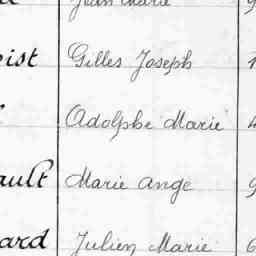 Jean Marie
Gilles Joseph
Adolphe Marie
ault Marie Ange
ard Julien Marie